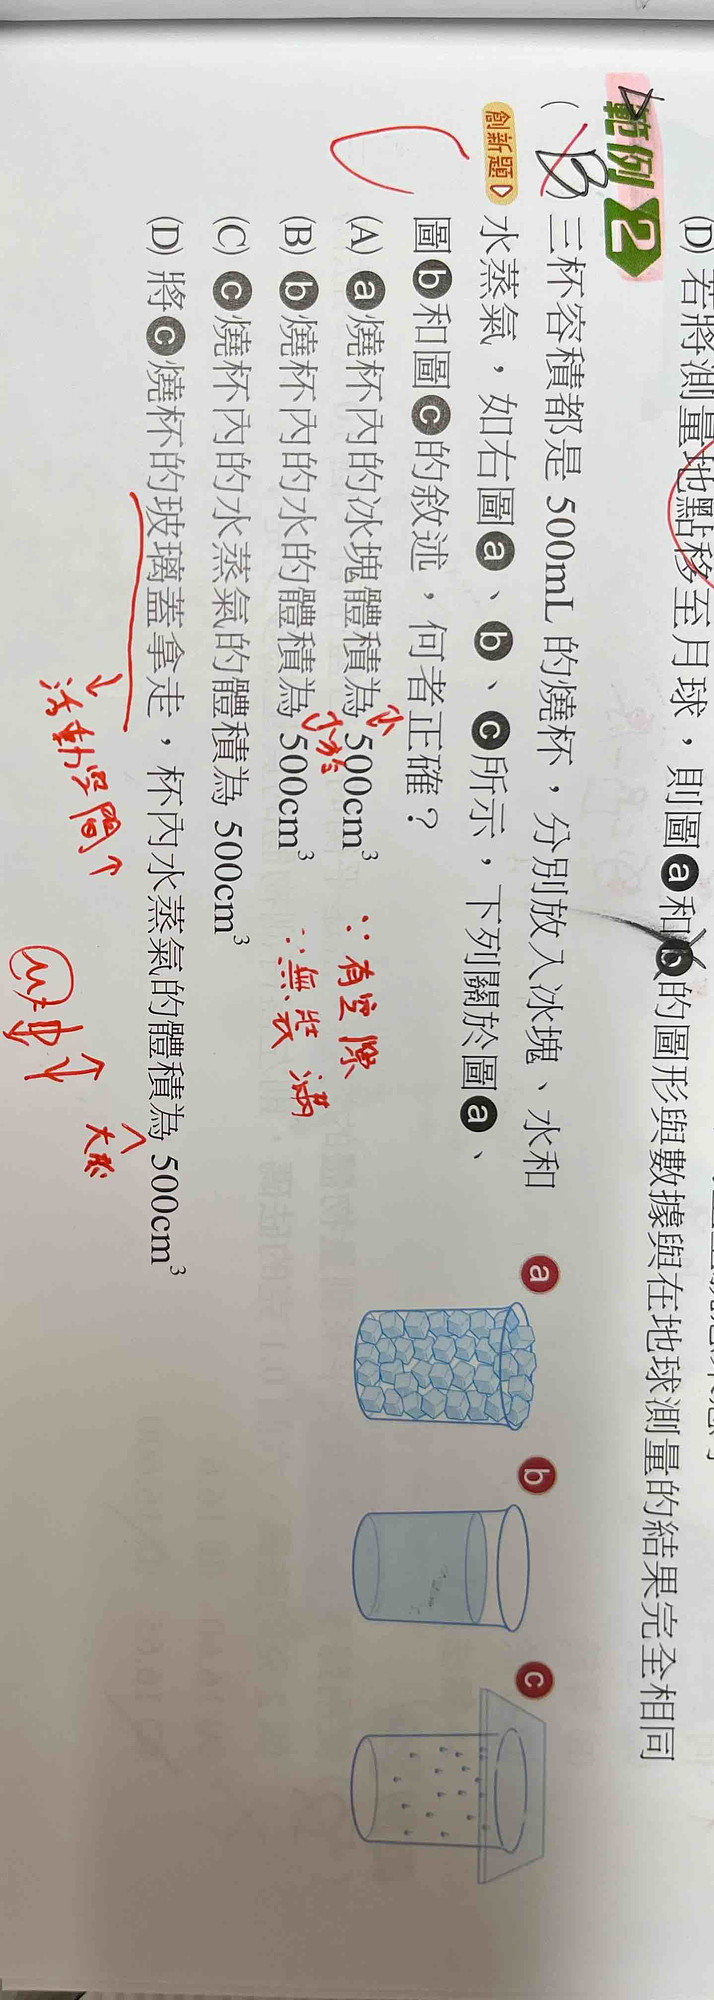 (D) 若將測量地點移至月球，則圖ⓐ和ⓑ的圖形與數據與在地球測量的結果完全相同
範例 2
( B ) 三杯容積都是 500mL 的燒杯，分別放入冰塊、水和
創新題 水蒸氣，如右圖ⓐ、ⓑ、ⓒ所示，下列關於圖ⓐ、
圖ⓑ和圖ⓒ的敘述，何者正確？
(A) ⓐ燒杯內的冰塊體積為 500cm³ ∵有空隙
小於
(B) ⓑ燒杯內的水的體積為 500cm³ ∵無裝滿
(C) ⓒ燒杯內的水蒸氣的體積為 500cm³
(D) 將ⓒ燒杯的玻璃蓋拿走，杯內水蒸氣的體積為 500cm³
大於
活動空間↑
a
b
c